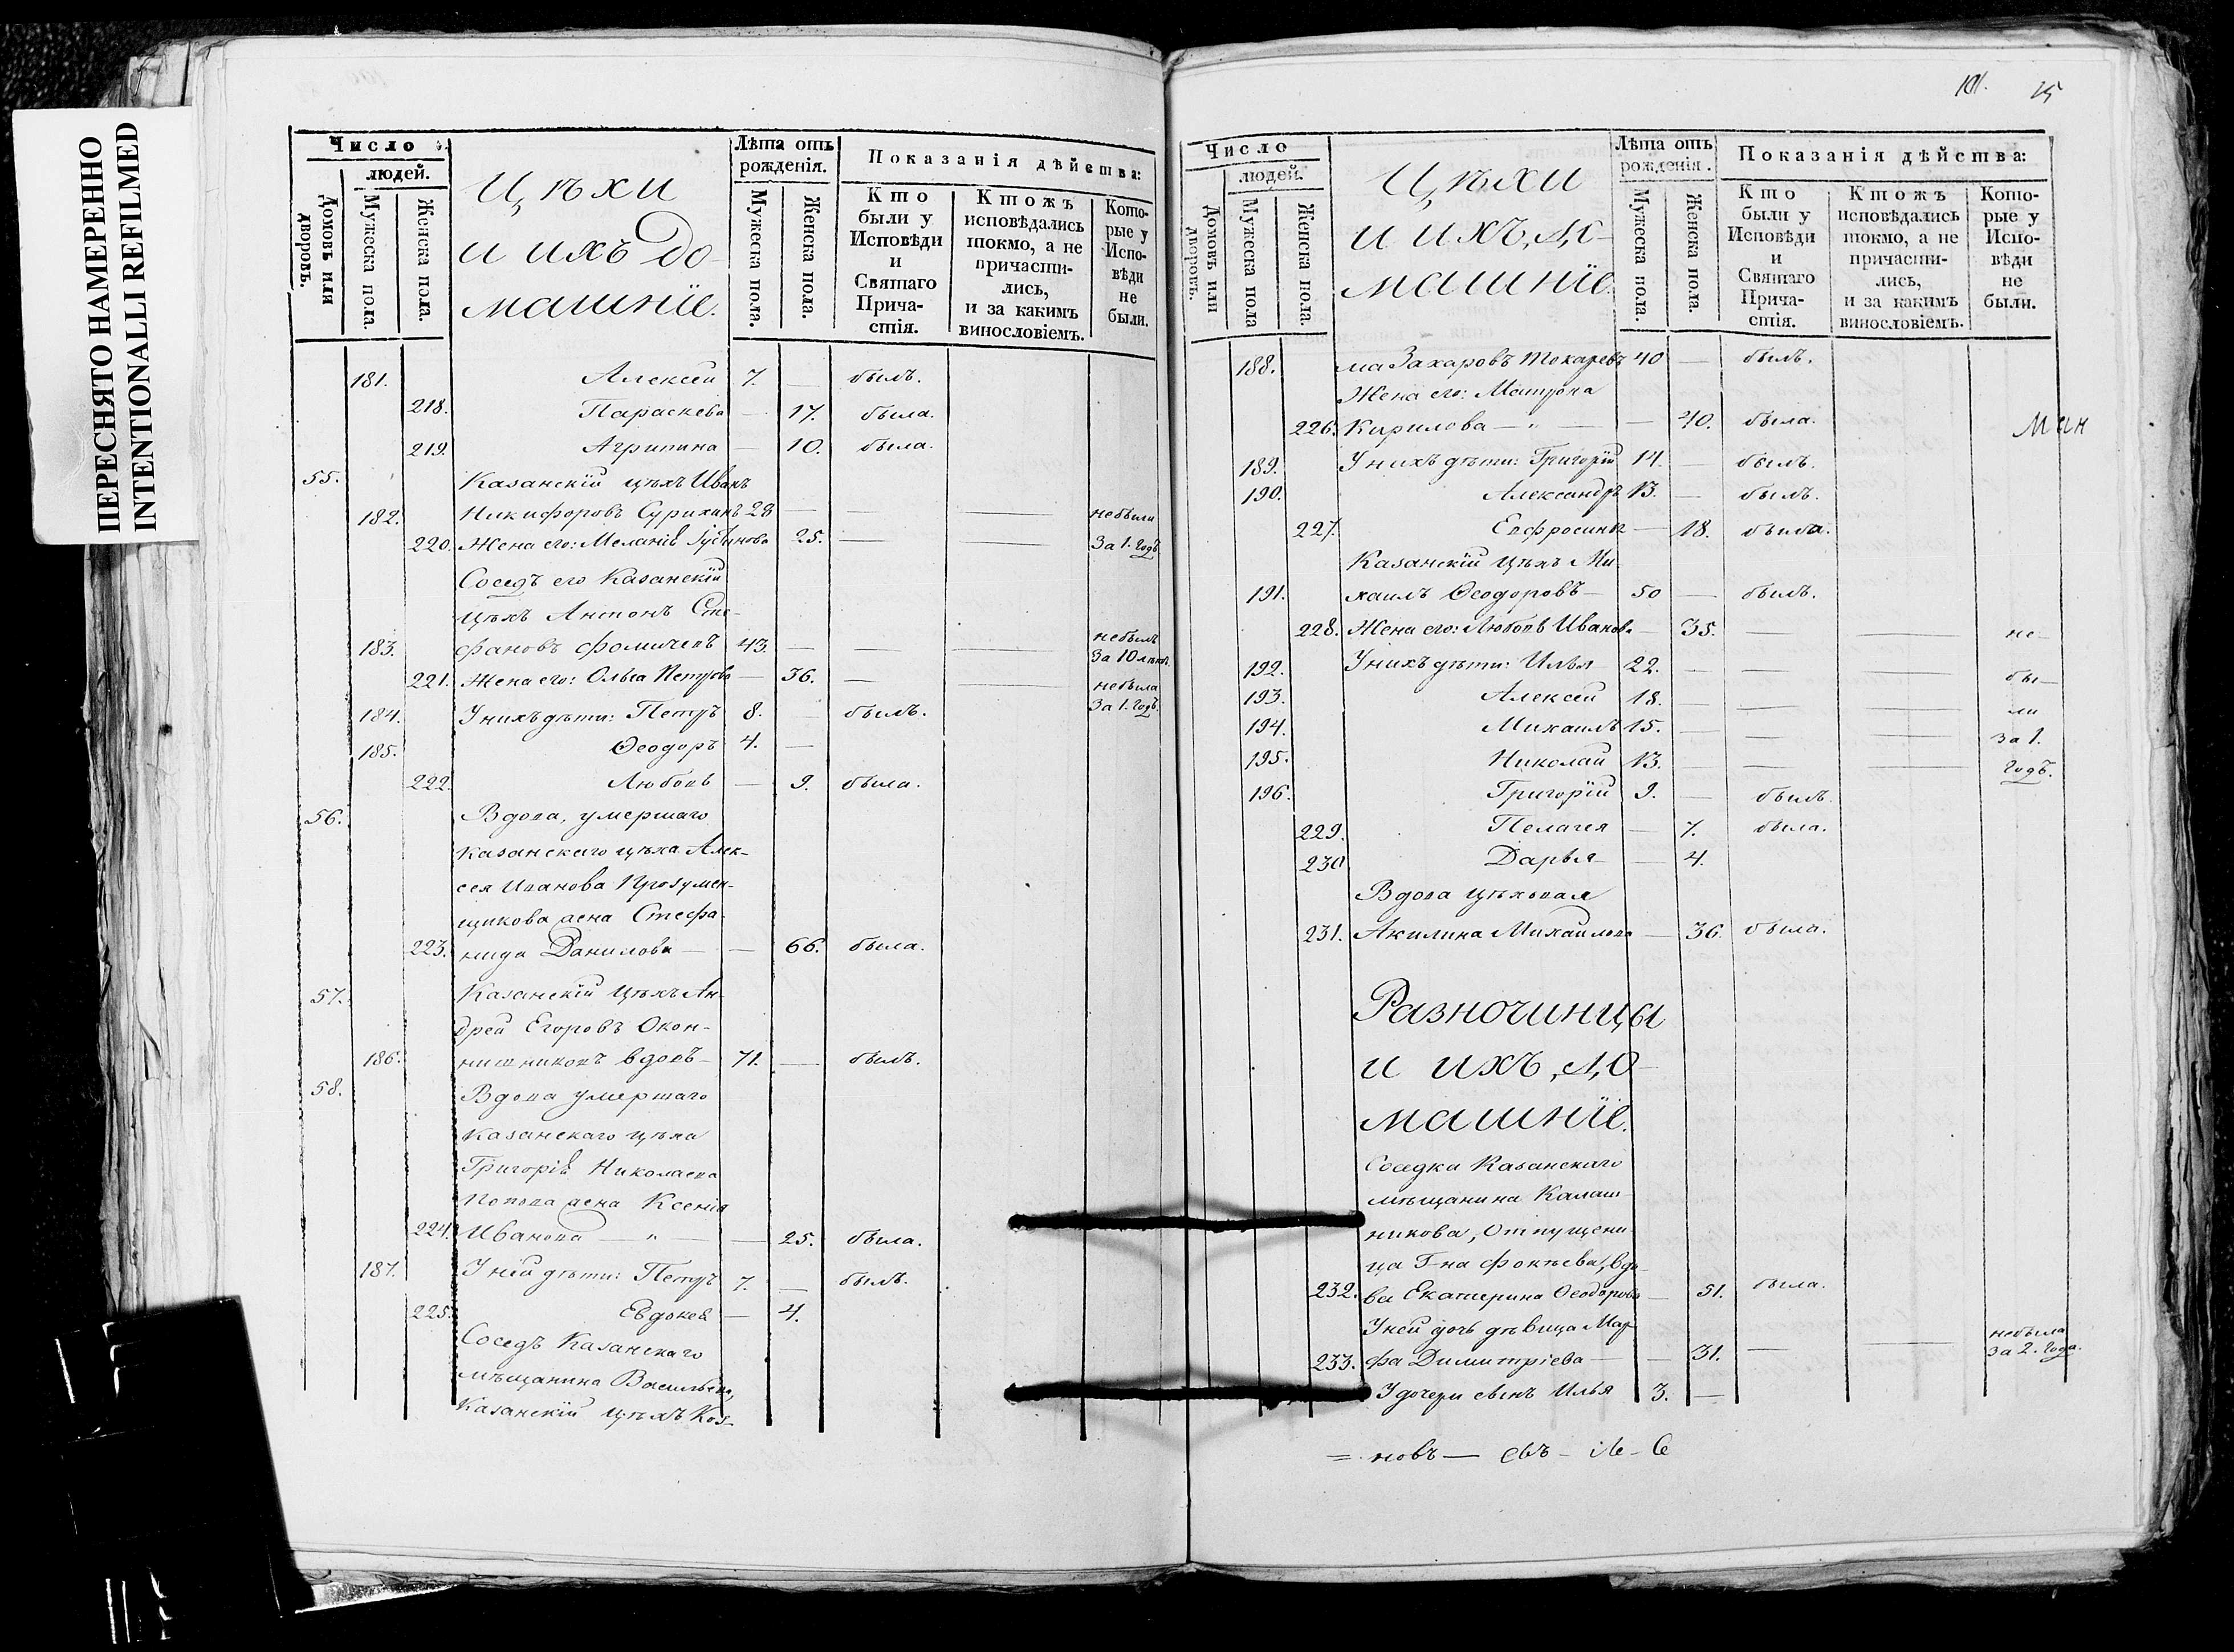 ПЕРЕСНЯТО НАМЕРЕННО
INTENTIONALLI REFILMED
Число
людей.
Домовъ или дворовъ.
Мужеска пола.
Женска пола.
Цѣхи
и ихъ до-
машнїе.
Лѣта отъ рожденія.
Мужеска пола.
Женска пола.
Показанія дѣйства:
Кто были у Исповѣди и Святаго Прича-стія.
Ктожъ исповѣдались токмо, а не причасти-лись, и за какимъ винословіемъ.
Кото-рые у Испо-вѣди не были.
181. Алексей 7. — былъ.
218. Параскева — 17. была.
219. Агрипина — 10. была.
55. Казанскїй цѣхъ Иванъ
182. Никифоровъ Сурихинъ 28 — — — небыли
220. Жена его: Меланiя — 25. — — За 1. годъ
Соседъ его Казанскїй
цѣхъ Антонъ Сте-
183. фановъ Фомичевъ 43. — — — небылъ За 10 лѣтъ.
221. Жена его: Ольга Петрова — 36. — — небыла За 1. годъ.
184. У нихъ дѣти: Петръ 8. — былъ.
185. Ѳеодоръ 4. —
222. Любовь — 9. была.
56. Вдова, умершаго
Казанскаго цѣха Алек-
сея Иванова Прозумен-
щикова жена Стефа-
223. нида Данилова — — 66. была.
57. Казанскїй цѣхъ Ан-
дрей Егоровъ Окон-
186. нишниковъ вдовъ — 71. — былъ.
58. Вдова умершаго
Казанскаго цѣха
Григорiя Николаева
Попова жена Ксенiя
224. Иванова — „ — — 25. была.
187. У ней дѣти: Петръ 7. — былъ.
225. Евдокея — 4.
Соседъ Казанскаго
мѣщанина Васильева,
Казанскїй цѣхъ Коз-
101. 15
Число
людей.
Домовъ или дворовъ.
Мужеска пола
Женска пола.
Цѣхи
и ихъ до-
машнїе.
Лѣта отъ рожденія.
Мужеска пола.
Женска пола.
Показанія дѣйства:
Кто были у Исповѣди и Святаго Прича-стія.
Ктожъ исповѣдались токмо, а не причасти-лись, и за какимъ винословіемъ.
Кото-рые у Испо-вѣди не были.
188. ма Захаровъ Токаревъ 40 — былъ.
Жена его: Матрона
226. Кирилова — „ — — 40. была.
189. У нихъ дѣти: Григорїй 14. — былъ.
190. Александръ 13. — былъ.
227. Евфросинiя — 18. была.
Казанскїй цѣхъ Ми-
191. хаилъ Ѳеодоровъ — 50 — былъ.
228. Жена его: Любовь Иванова — 35. — — не-
192. У нихъ дѣти: Илья 22. — — — бы-
193. Алексей 18. — — — ли
194. Михаилъ 15. — — — за 1.
195. Николай 13. — — — годъ.
196. Григорїй 9. — былъ
229. Пелагея — 7. была.
230 Дарья — 4.
Вдова цѣховая
231. Акилина Михайлова — 36. была.
Разночинцы
и ихъ до-
машнїе.
Соседка Казанскаго
мѣщанина Калаш-
никова, Отпущени-
ца Г-на Фоктева, вдо-
232. ва Екатерина Ѳеодорова — 51. была.
У ней дочь дѣвица Мар-
233. фа Димитрiева — — 31. — — небыла за 2. года.
У дочери сынъ Илья 3. —
= новъ —